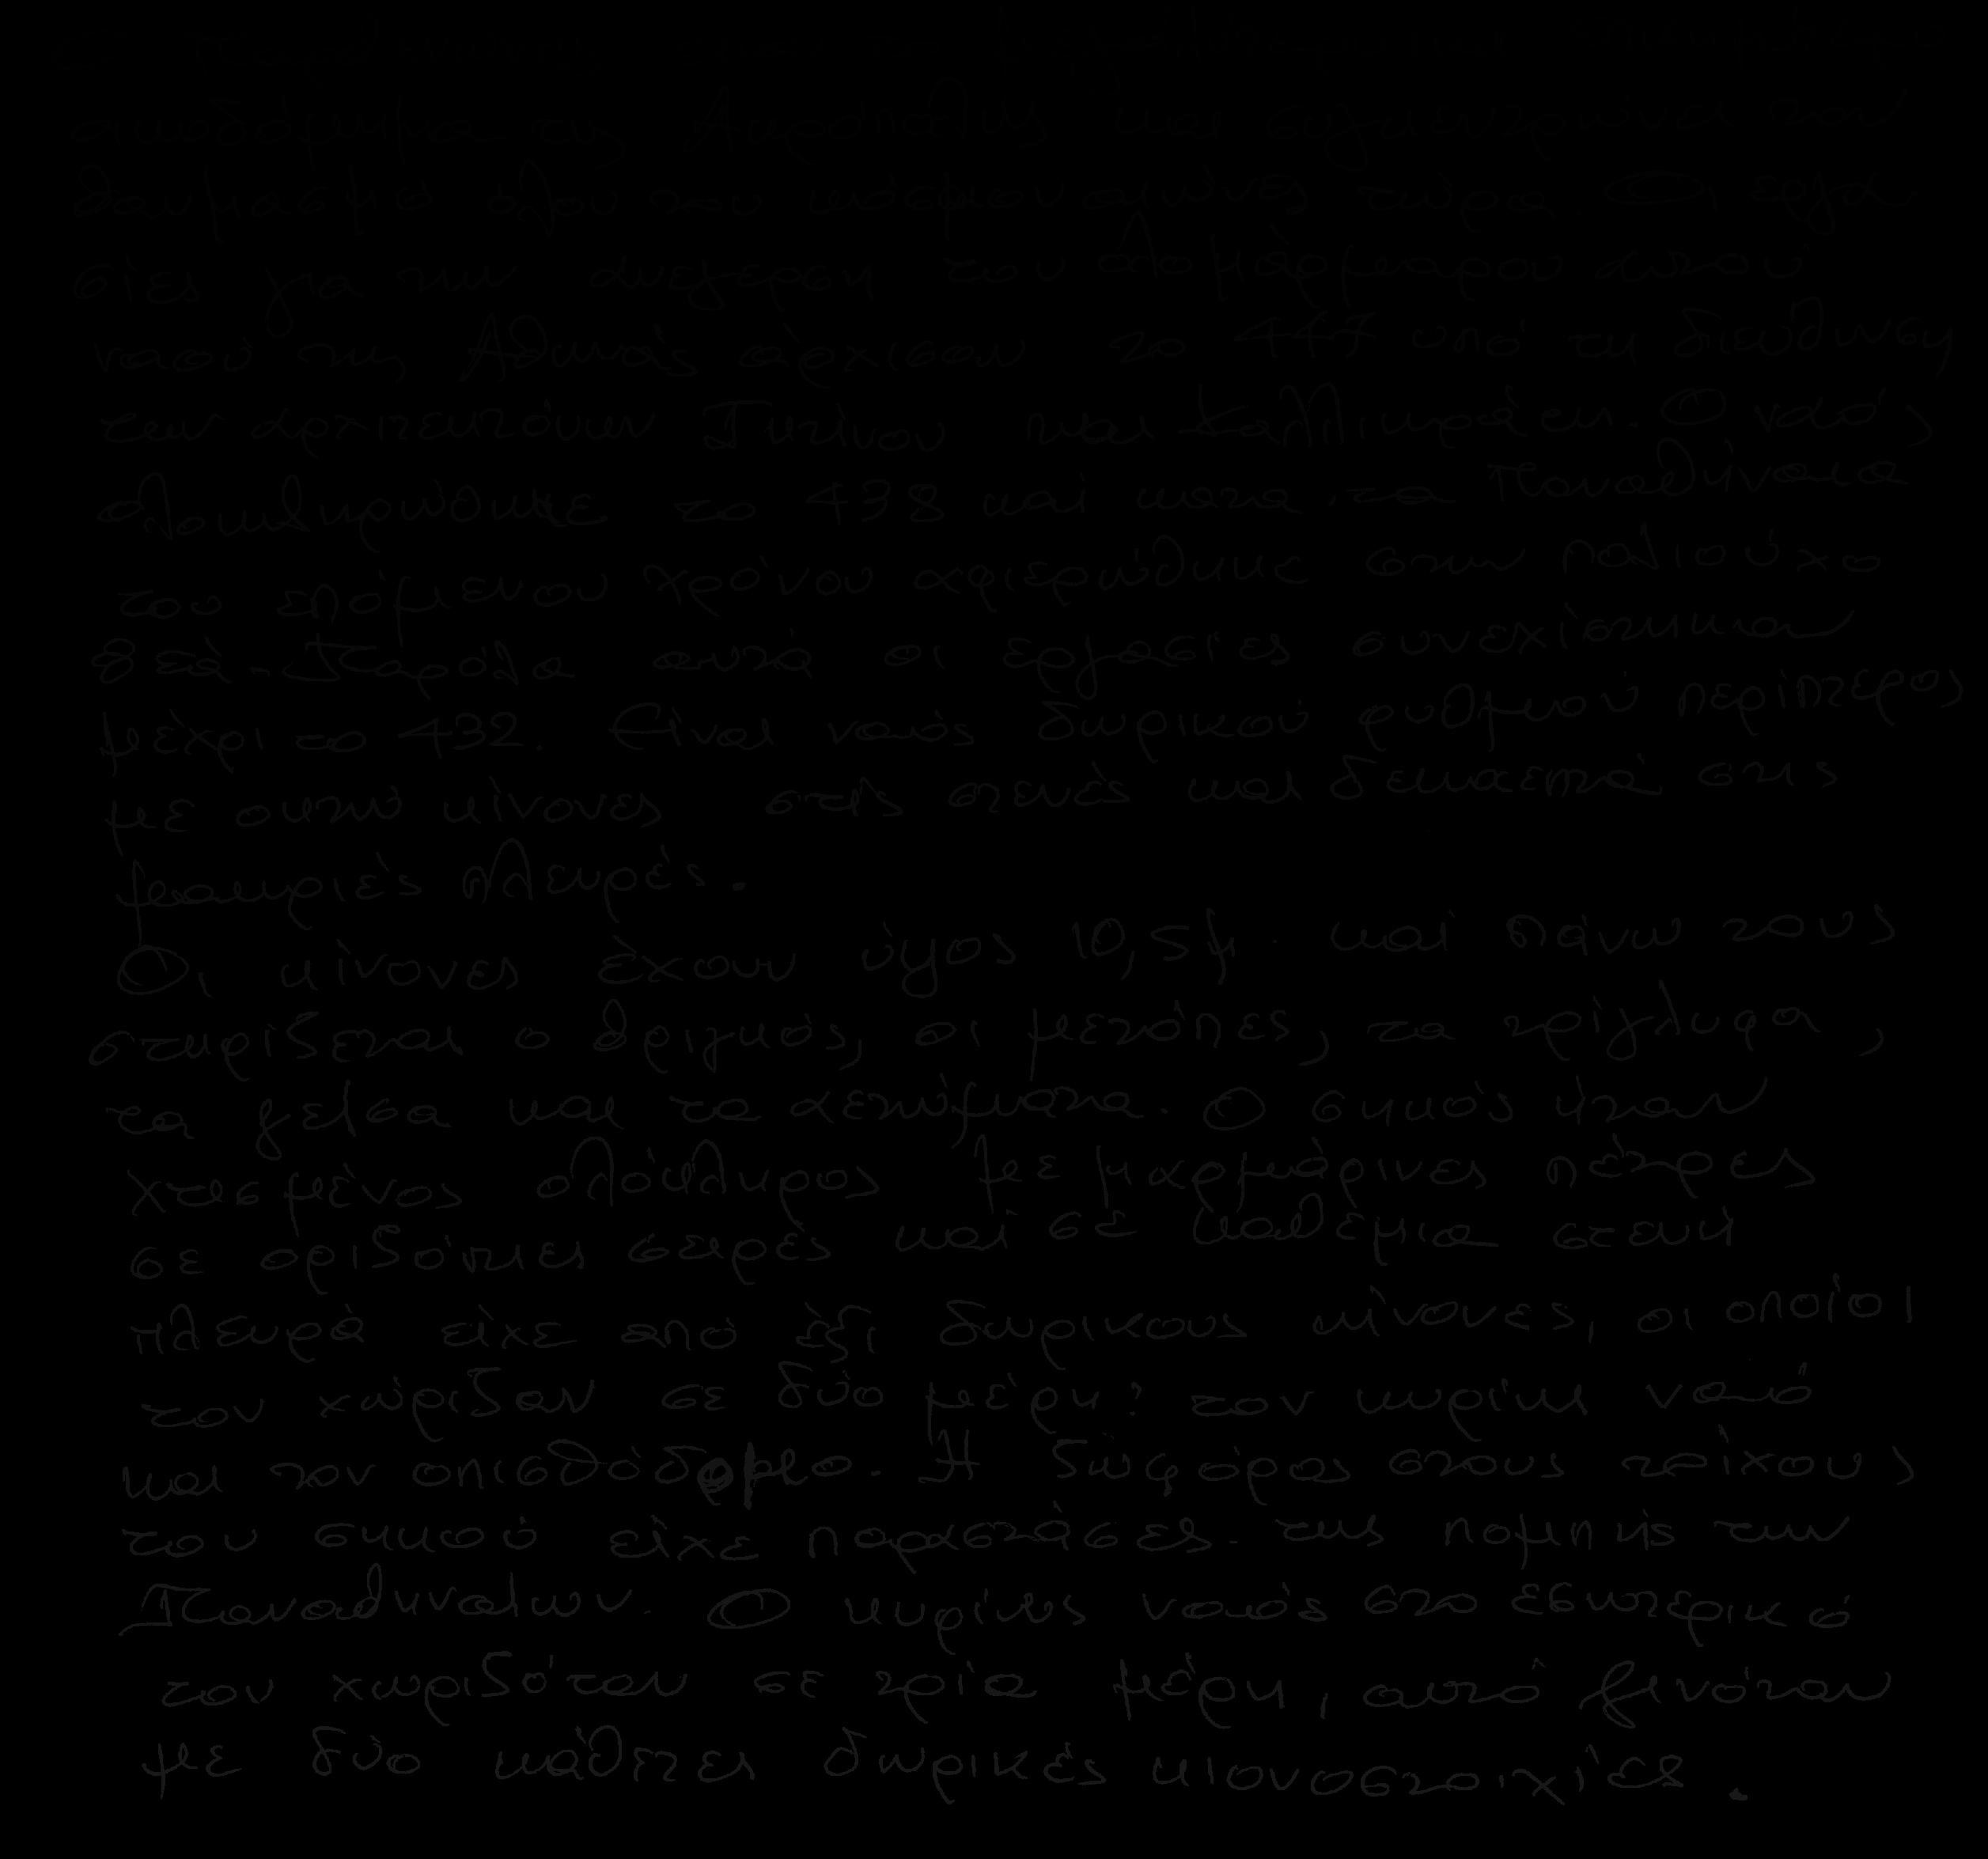 οικοδόμημα της Ακρόπολης και συγκεντρώνει τον
θαυμασμό όλου του κόσμου αιώνες τώρα. Οι εργα
σίες για την ανέγερση του ολομάρμαρου αυτού
ναού της Αθηνάς άρχισαν το 447 υπό τη διεύθυνση
των αρχιτεκτόνων Ικτίνου και Καλλικράτη. Ο ναός
ολοκληρώθηκε το 438 καί κατα τα Παναθήναια
του επόμενου χρόνου αφιερώθηκε στην πολιούχο
θεά. Παρόλα αυτά οι εργασίες συνεχίστηκαν
μέχρι το 432. Είναι ναός δωρικού ρυθμού περίπτερος
με οκτώ κίνονες στις στενές και δεκαεπτά στις
μακριές πλευρές.
Οι κίνονες έχουν ύψος 10,5μ. καί πάνω τους
στηρίζεται ο θριγκός, οι μετόπες, τα τρίγλυφα,
τα γείσα και τα αετώματα. Ο σηκός ήταν
χτισμένος ολόκληρος με μαρμάρινες πέτρες
σε οριζόντιες σειρές καί σε καθέμια στενή
πλευρά είχε από έξι δωρικους κίνονες, οι οποίοι
τον χώριζαν σε δύο μέρη: τον κυρίως ναό
και τον οπισθόδομο. Η ζωφόρος στους τοίχους
του σηκού είχε παραστάσεις της πομπής των
Παναθηναίων. Ο κυρίως ναός στο εσωτερικό
του χωριζόταν σε τρία μέρη, αυτό γινόταν
με δύο κάθετες δωρικές κιονοστοιχίες.